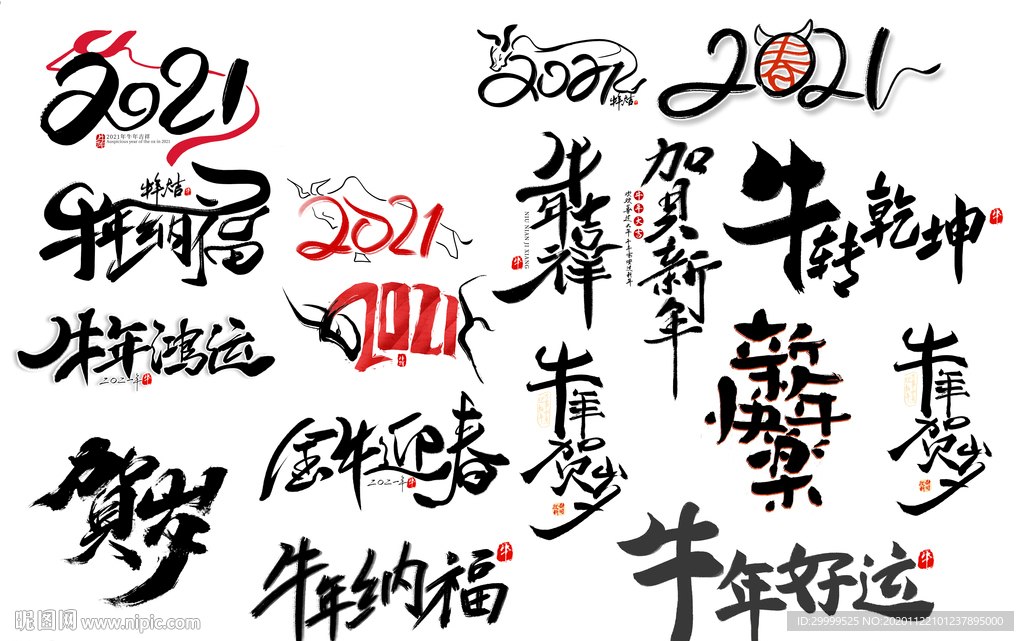 2021
2021年牛年吉祥
Auspicious year of the ox in 2021
2021
2021
牛年纳福
2021
2021
牛年吉祥
NIU NIAN JI XIANG
賀新年
牛转乾坤
牛
牛年鸿运
2021年
牛
牛年贺岁
新年快樂
牛年贺岁
賀岁
金牛迎春
2021年
牛
牛年纳福
牛
牛年好运
牛
昵图网 www.nipic.com
ID:29999525 NO:20201122101237895000